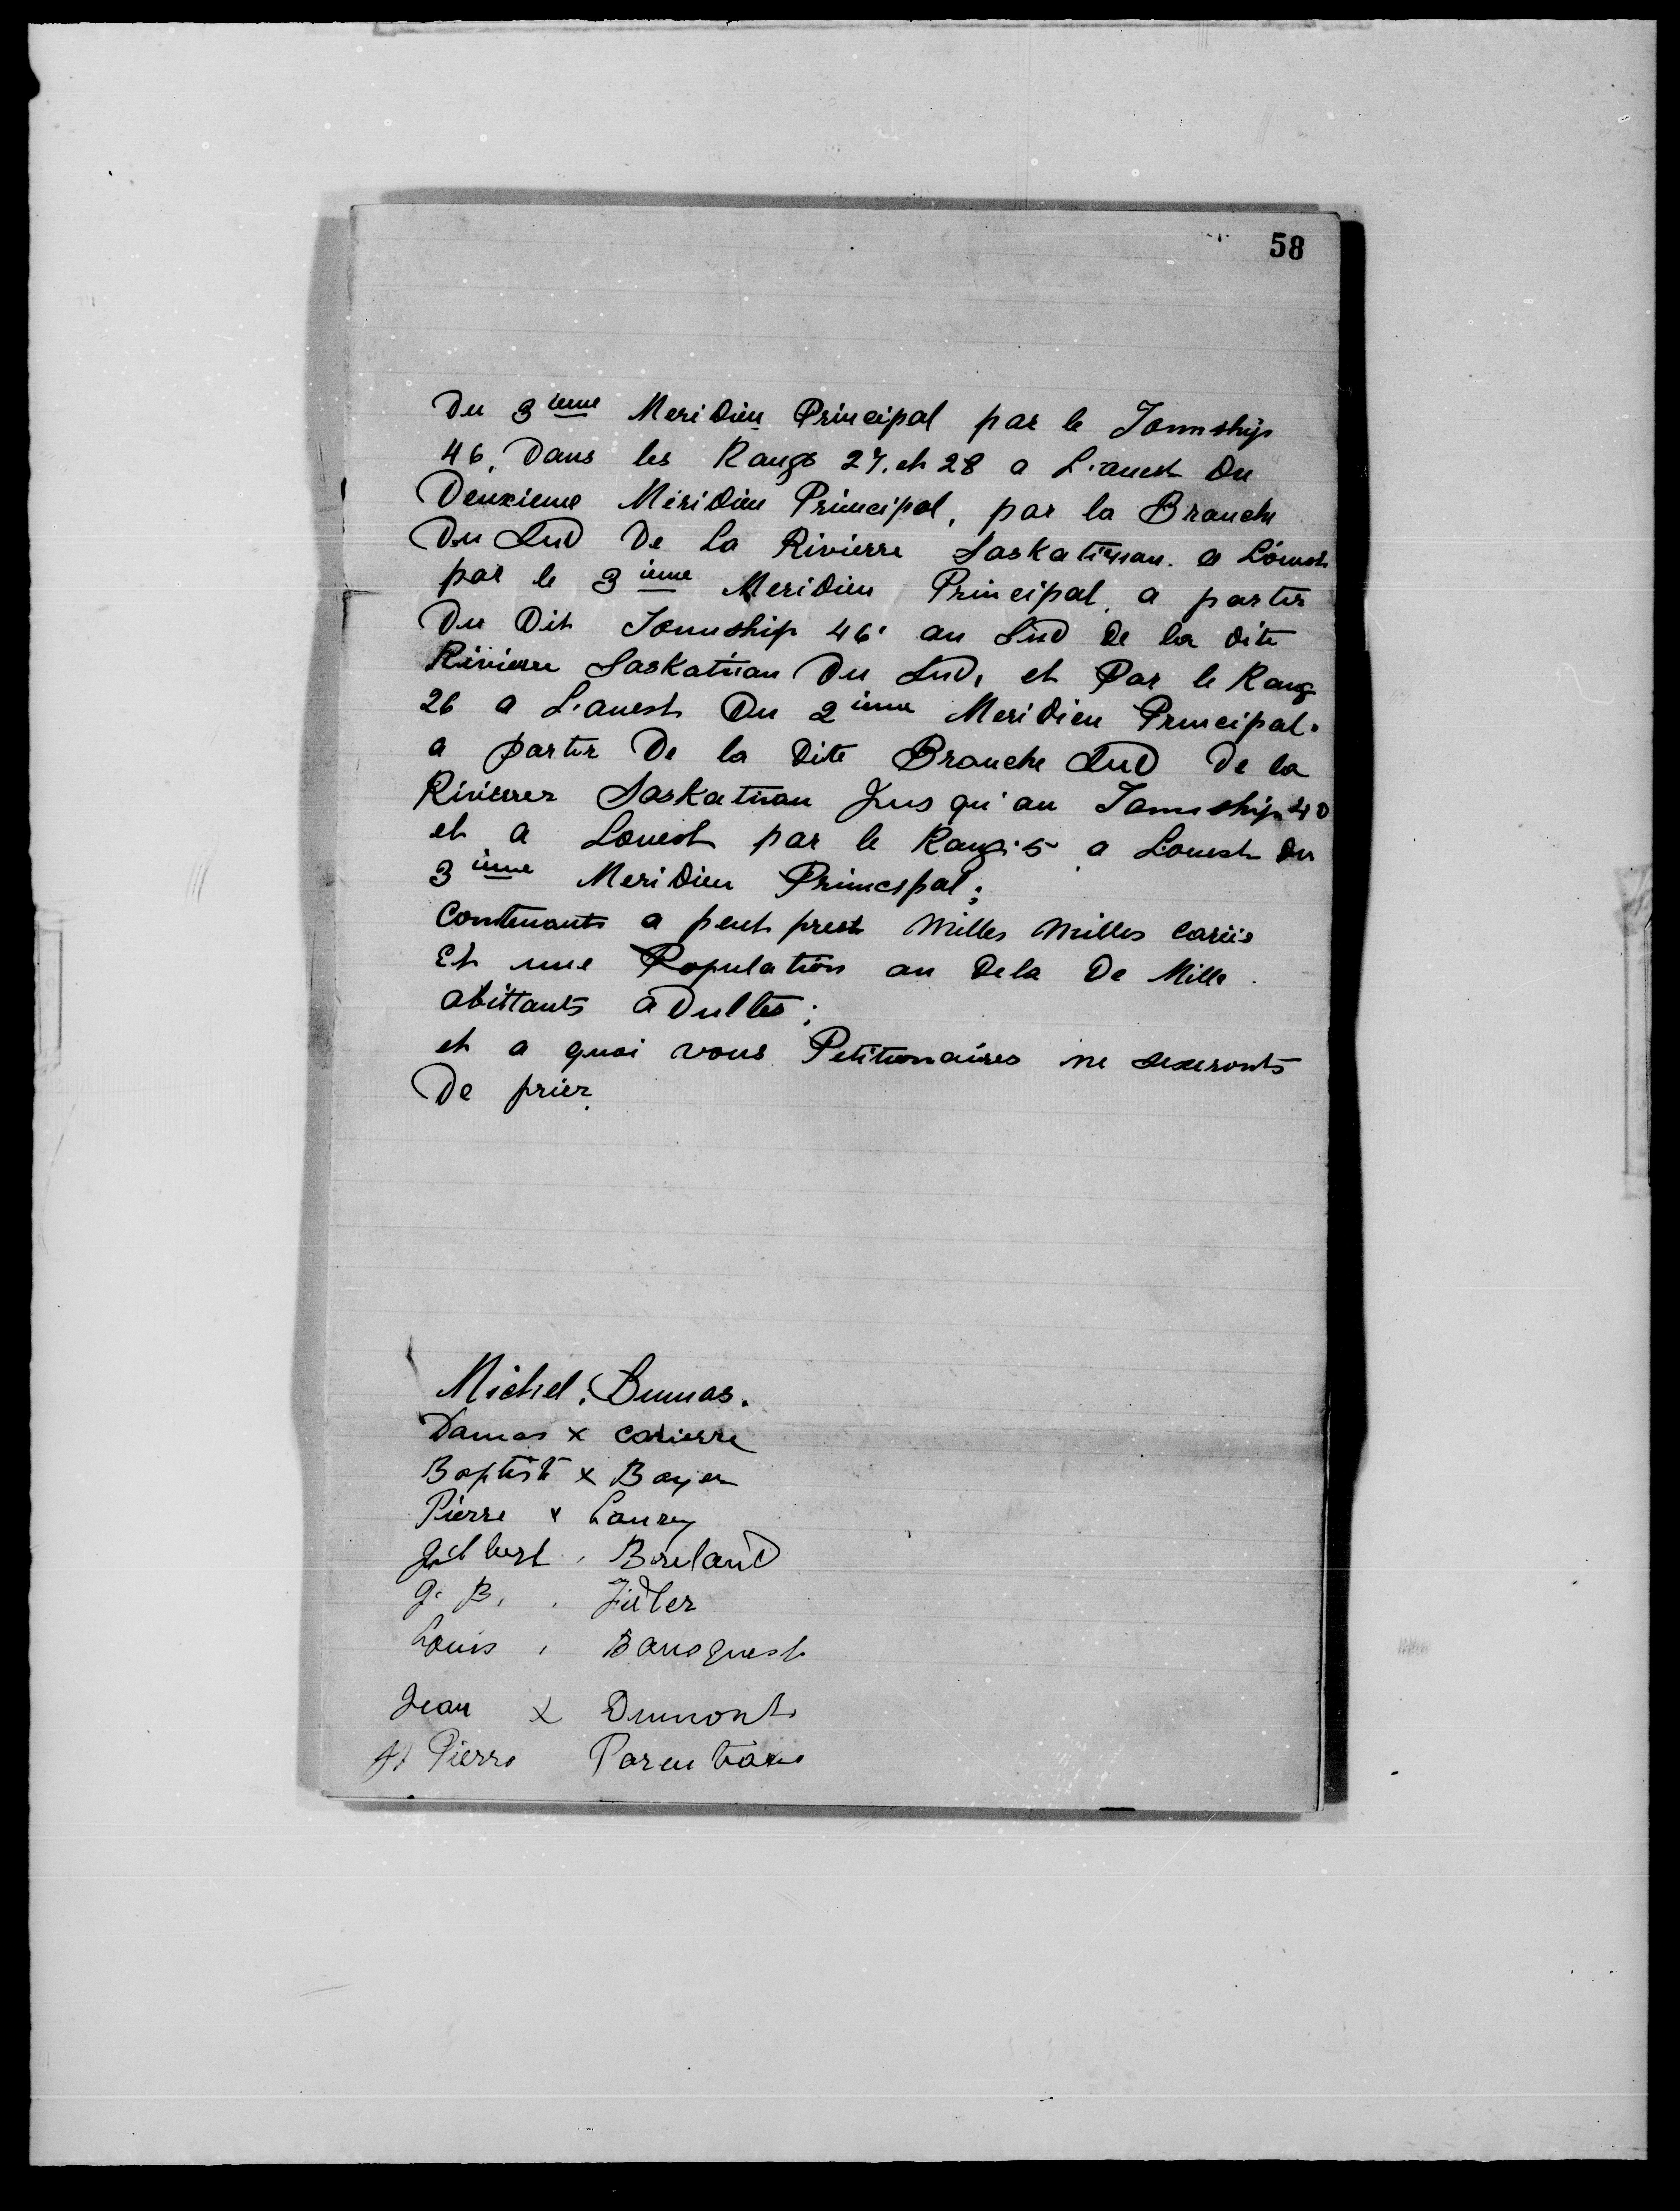 58
Du 3ieme Meridien Principal par le Township
46, Dans les Rangs 27. et 28 a L'ouest Du
Deuxieme Meridien Principal, par la Branche
Du Sud De La Rivierre Saskatiwan. a L'ouest
par le 3ieme Meridien Principal. a partir
Du Dit Township 46. au Sud De la dite
Rivierre Saskatiwan Du Sud, et Par le Rang
26 a L'ouest Du 2ieme Meridien Principal.
a partir De la Dite Branche Sud De la
Rivierrer Saskatiwan Jus qu'au Township 40
et a Louest par le Rang. 5 a L'ouest Du
3ieme Meridien Principal;
Contenants a peut prest Milles Milles Cariés
Et une Population au Dela De Mille
abittants aDultes;
et a quoi vous Petitionaires ne sesseronts
De prier.
Michel. Dumas.
Damas x Carierre
Baptiste x Boyer
Pierre x
Gilbert. Breland
J. B. . Fidler
Louis . Bousquest
Jean x Dumont
Pierre Parenteau